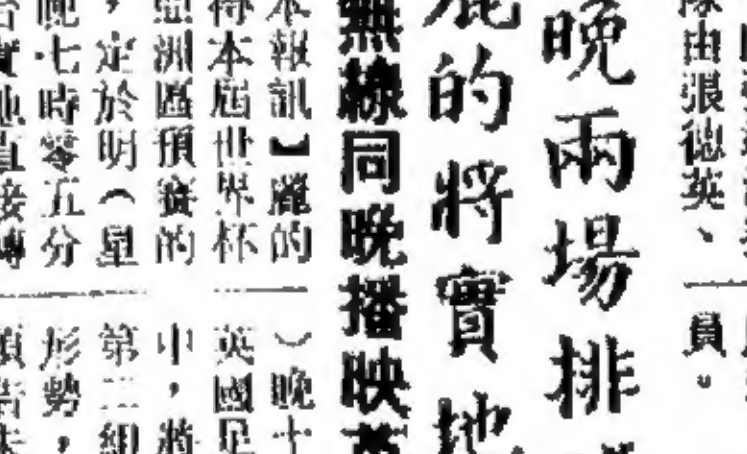 隊由張德英、
員。
晚兩場排
的將實地
無線同晚播映英
本報訊】麗的
得本屆世界杯
亞洲區預賽的
，定於明（星
晚七時零五分
台實地直接轉
）晚十
英國足
中，將
第二組
形勢，
預告